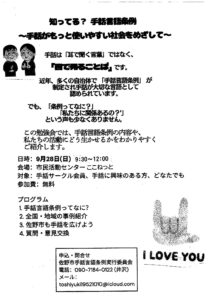 知ってる? 手話言語条例
～手話がもっと使いやすい社会をめざして～
手話は「耳で聞く言葉」ではなく、
「目で見ることば」です。
近年、多くの自治体で「手話言語条例」が
制定され手話が大切な言語として
認められています。
でも、「条例ってなに?」
「私たちに関係あるの?」
という声も少なくありません。
この勉強会では、手話言語条例の内容や、
私たちの活動にどう生かせるかをわかりやすく
ご紹介します。
日時: 9月28日(日) 9:30~12:00
会場: 市民活動センター ここねっと
対象: 手話サークル会員、手話に興味のある方、どなたでも
参加費: 無料
プログラム
1.手話言語条例ってなに?
2.全国・地域の事例紹介
3.佐野市も手話を広げよう
4.質問・意見交換
I LOVE YOU
申込・問合せ
佐野市手話言語条例実行委員会
電話: 090-7184-0122 (井沢)
メール:
toshiyuki19521010@icloud.com